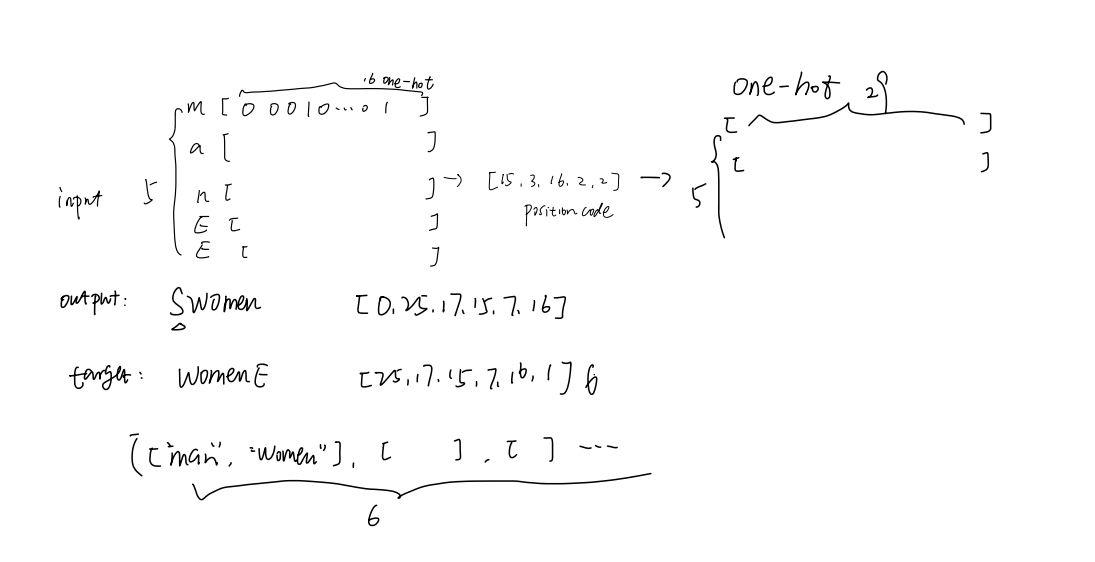 .6 one-hot
one-hot 29
m [ 0 0 0 1 0 ... 0 1 ]
[ ]
a [ ]
[ ]
input 5 n [ ] → [15, 3, 16, 2, 2] → 5
position code
E [ ]
E [ ]
output: SWomen [0, 25, 17, 15, 7, 16]
target: WomenE [25, 17, 15, 7, 16, 1] 6
[["man", "Women"], [ ], [ ] ---
6